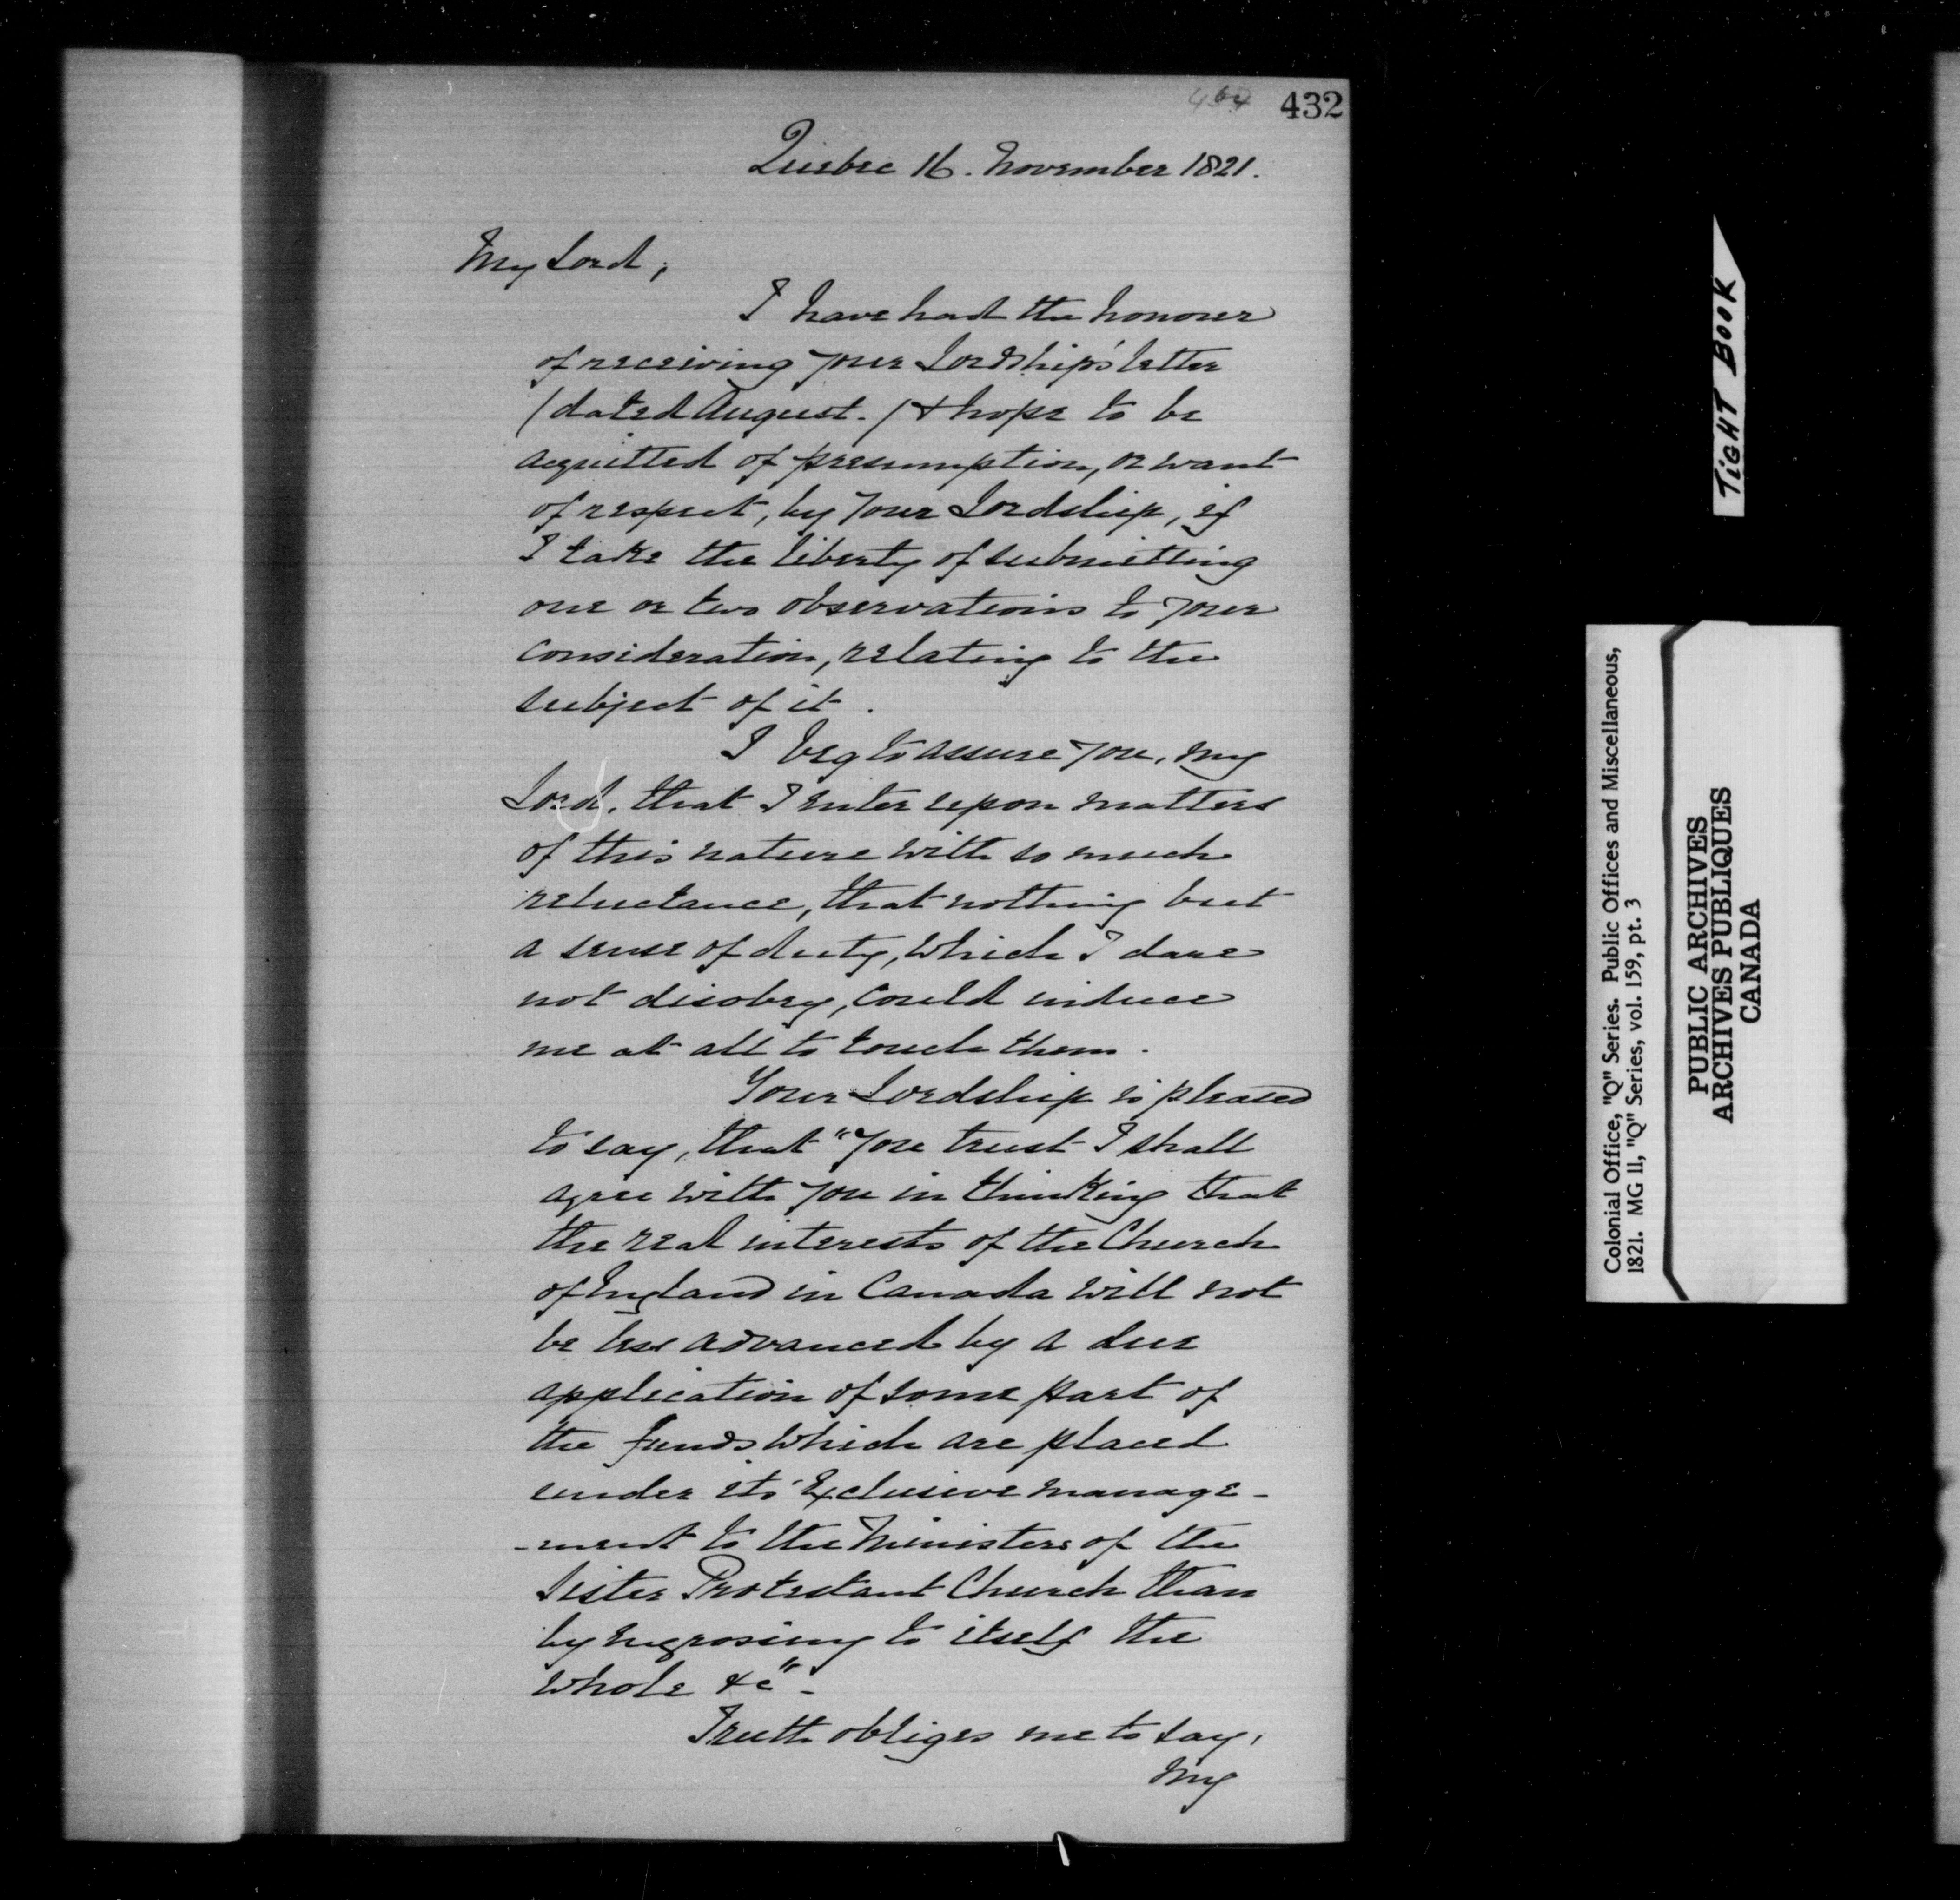 432
Quebec 16. November 1821.
My Lord,
I have had the honour
of receiving your Lordship's letter
(dated August.) & hope to be
acquitted of presumption, or want
of respect, by your Lordship, if
I take the liberty of submitting
one or two observations to your
consideration, relating to the
subject of it.
I beg to assure you, my
Lord, that I enter upon matters
of this nature with so much
reluctance, that nothing but
a sense of duty, which I dare
not disobey, could induce
me at all to touch them.
Your Lordship is pleased
to say, that "you trust I shall
agree with you in thinking that
the real interests of the Church
of England in Canada will not
be less advanced by a due
application of some part of
the funds which are placed
under its exclusive manage-
-ment to the Ministers of the
Sister Protestant Church than
by engrossing to itself the
whole &c" -
Truth obliges me to say,
my
TIGHT BOOK
Colonial Office, "Q" Series. Public Offices and Miscellaneous,
1821. MG 11, "Q" Series, vol. 159, pt. 3
PUBLIC ARCHIVES
ARCHIVES PUBLIQUES
CANADA